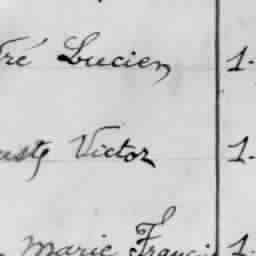 tré Lucien 1-
uste Victor 1-
Marie Franci 1-